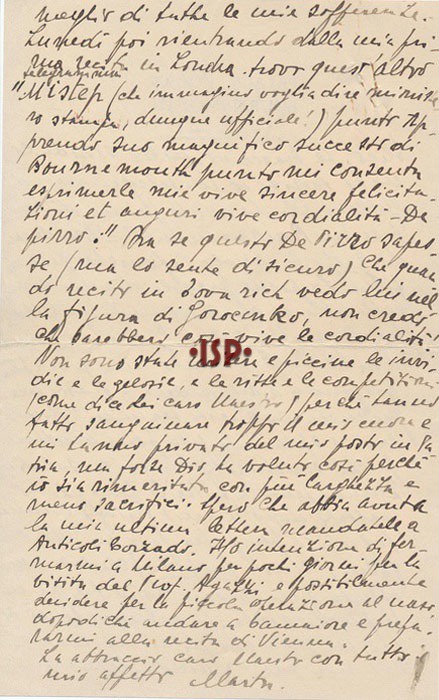 meglio di tutte le mie sofferenze.
Lunedì poi rientrando dalla mia pri-
ma recita in Londra trovo quest'altro
telegramma
"Mistep (che immagino voglia dire ministe-
ro stampa, dunque ufficiale!) punto Ap-
prendo suo magnifico successo di
Bournemouth punto mi consenta
esprimerle mie vive sincere felicita-
zioni et auguri vive cordialità - De
pirro." Ma se questo De Pirro sapes-
se (ma lo sente di sicuro) che quan-
do recito in vedo lui nel
la figura di non credo
che sarebbero così vive le cordialità!
Non sono state e piccine le invi-
die e le gelosie, e le ritte e le competizioni
(come dice Lei caro Maestro) perché fanno
tutto sanguinare troppo il mio cuore e
mi hanno privata del mio posto in Pa-
tria, ma forse Dio, ha voluto così perché
io sia rimeritata con più larghezza e
meno sacrifici. Spero che abbia avuta
la mia ultima lettera mandatale a
Anticoli Corrado. Ho intenzione di fer-
marmi a Milano per pochi giorni per la
visita del Prof. e possibilmente
decidere per la piccola operazione al naso
dopodiché andare a e prepa-
rarmi alla recita di Vienna.
La abbraccio caro Maestro con tutto il
mio affetto Marta.
·ISP·